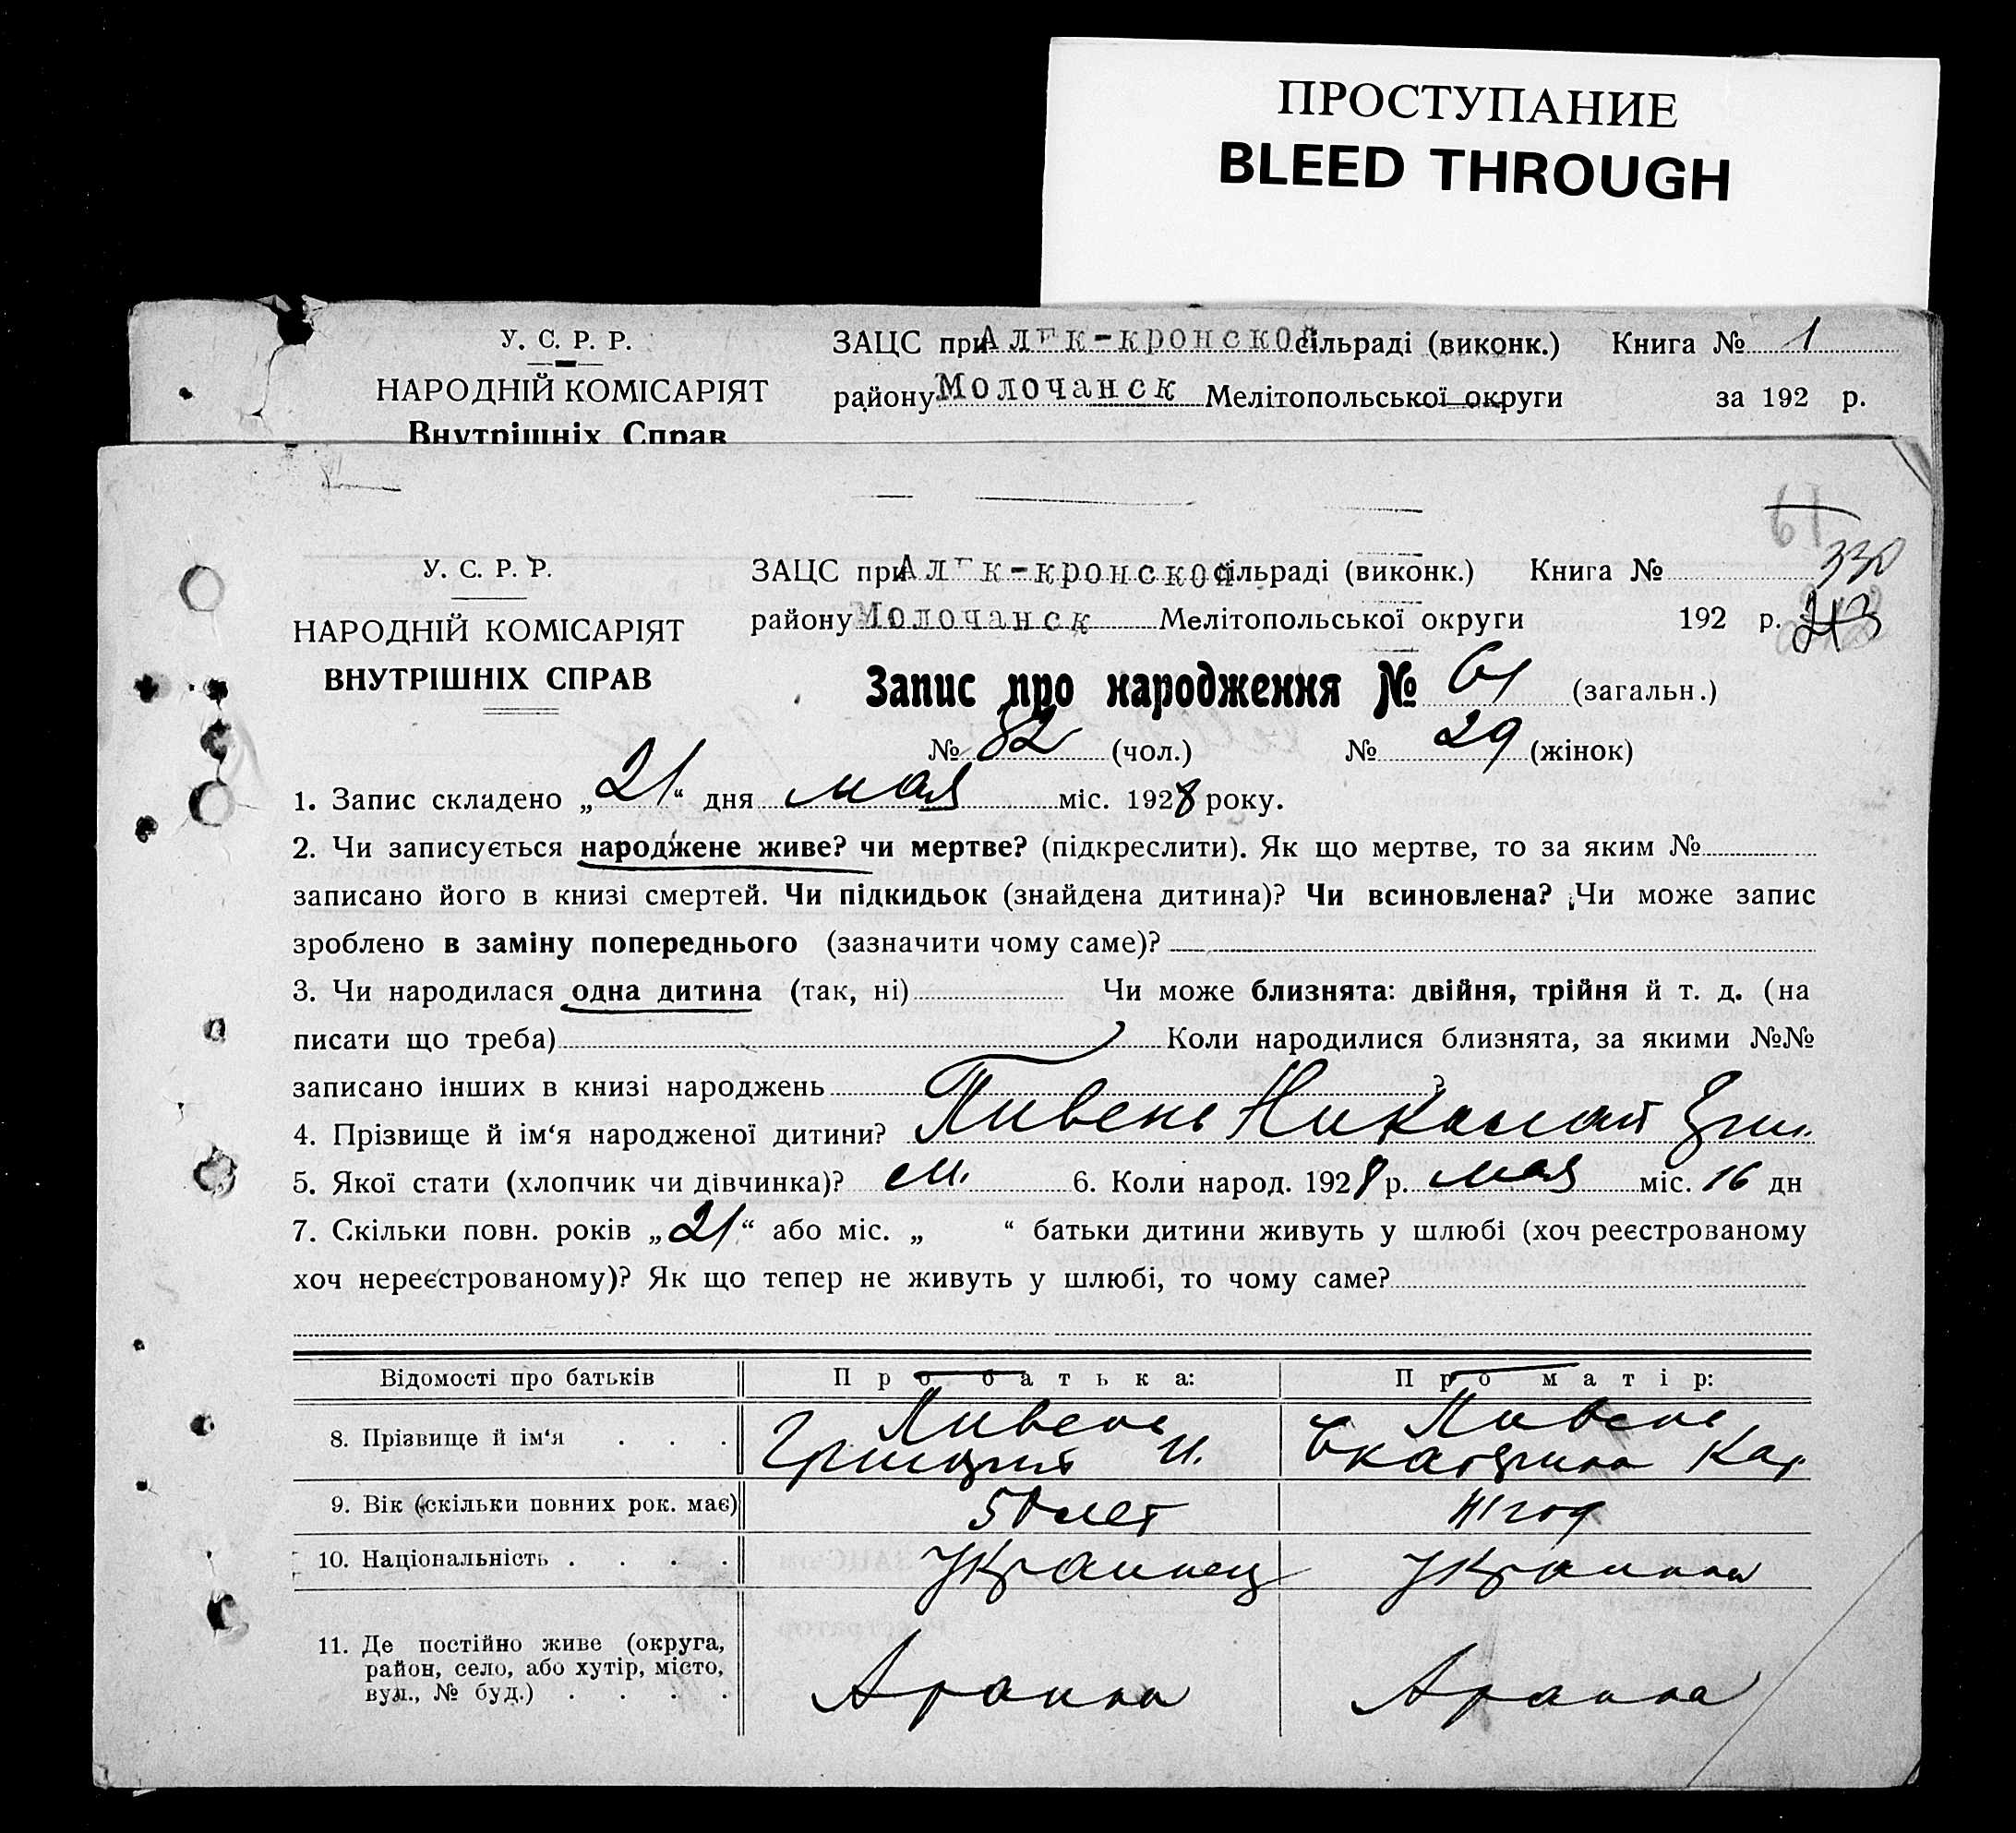 ПРОСТУПАНИЕ
BLEED THROUGH
У. С. Р. Р.
НАРОДНІЙ КОМІСАРІЯТ
Внутрішніх Справ
ЗАЦС при Алек-кронской сільраді (виконк.) Книга № 1
району Молочанск Мелітопольської округи за 192 р.
У. С. Р. Р.
НАРОДНІЙ КОМІСАРІЯТ
ВНУТРІШНІХ СПРАВ
ЗАЦС при Алек-кронской сільраді (виконк.) Книга №
330
району Молочанск Мелітопольської округи 192 р.
Запис про народження № 61 (загальн.)
№ 32 (чол.) № 29 (жінок)
1. Запис складено „21“ дня мая міс. 1928 року.
2. Чи записується народжене живе? чи мертве? (підкреслити). Як що мертве, то за яким №
записано його в книзі смертей. Чи підкидьок (знайдена дитина)? Чи всиновлена? Чи може запис
зроблено в заміну попереднього (зазначити чому саме)?
3. Чи народилася одна дитина (так, ні) Чи може близнята: двійня, трійня й т. д. (на
писати що треба) Коли народилися близнята, за якими №№
записано інших в книзі народжень ?
4. Прізвище й ім‘я народженої дитини? Пивень Николай Григ.
5. Якої стати (хлопчик чи дівчинка)? м. 6. Коли народ. 1928 р. мая міс. 16 дн
7. Скільки повн. років „21“ або міс. „ “ батьки дитини живуть у шлюбі (хоч реєстрованому
хоч нереєстрованому)? Як що тепер не живуть у шлюбі, то чому саме?
Відомості про батьків Про батька: Про матір:
8. Прізвище й ім‘я . . . Пивень Григорий И. Пивень Екатерина Кар.
9. Вік (скільки повних рок. має) 50 лет 41 год
10. Національність . . . . Украинец Украинка
11. Де постійно живе (округа,
район, село, або хутір, місто,
вул., № буд.) . . . .